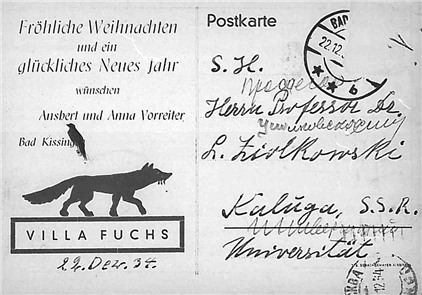 Fröhliche Weihnachten
und ein
glückliches Neues Jahr
wünschen
Ansbert und Anna Vorreiter
Bad Kissing
VILLA FUCHS
22. Dez. 34.
Postkarte
BAD
22.12.
b
S. H.
Herrn Professor Dr.
Циолковскому
L. Ziolkowski
Kaluga, S.S.R.
Universität